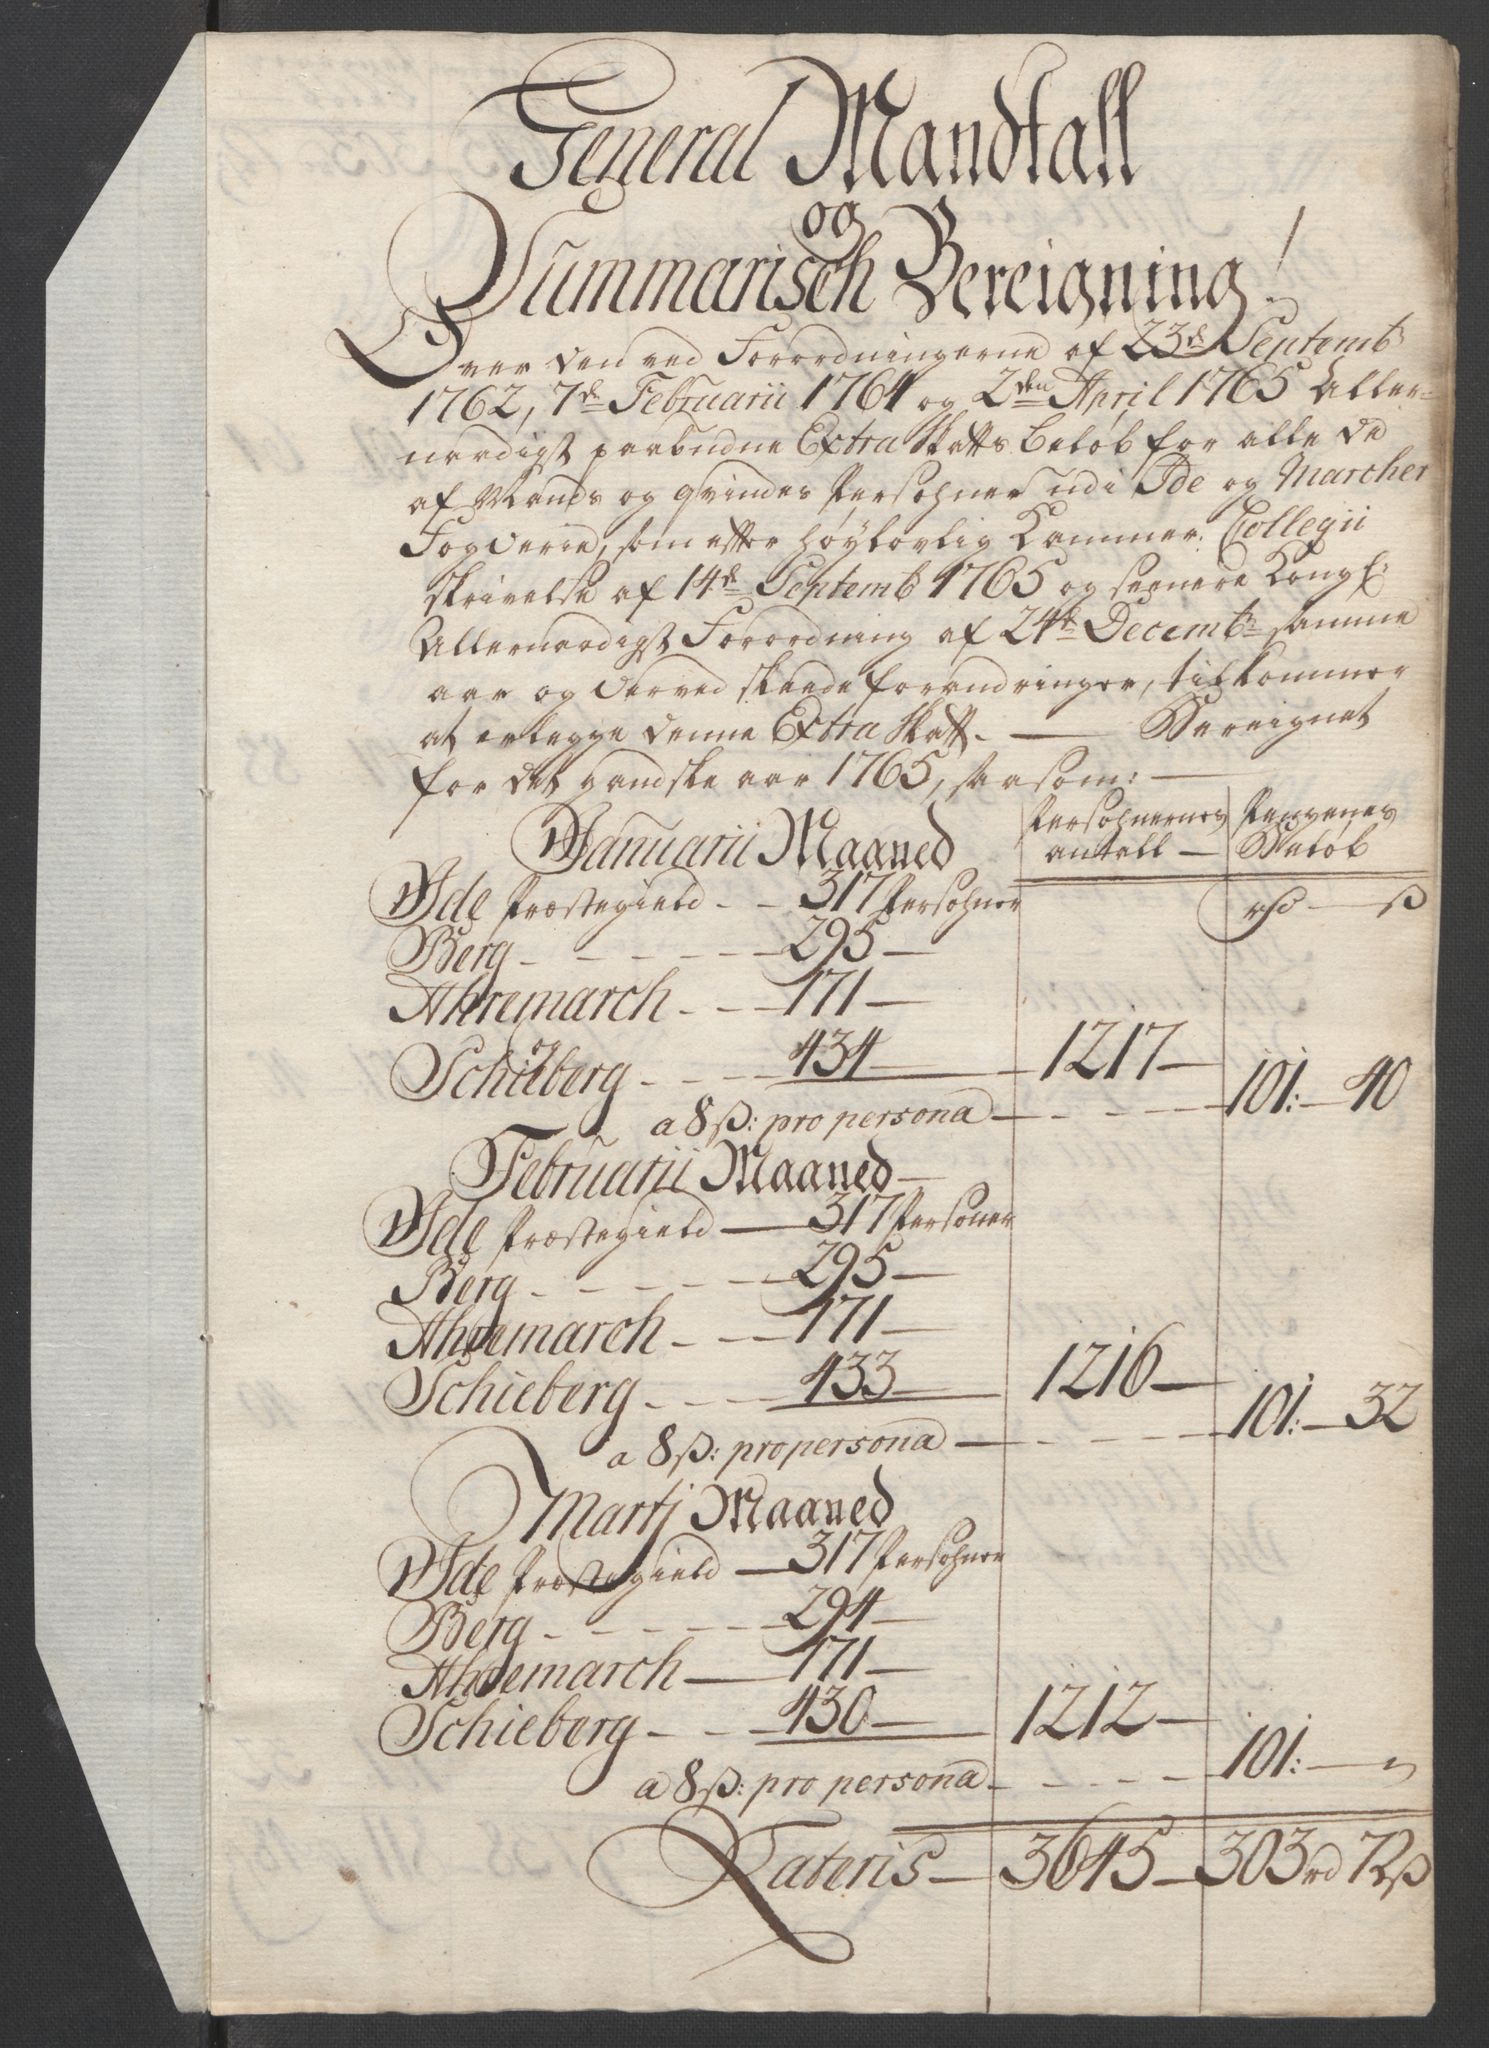 General Mandtall
og
Summarisch Bereigning!
Over den ved Forordningerne af 23de Septembr
1762, 7de Februarii 1764 og 2den April 1765 Aller-
naadigst paabudne Extra Skatts beløb for alle de
af Mands og qvindes Persohner udi Ide og Marcher
Fogderie, som efter høylovlig Kammer: Collegii
skrivelse af 14de Septemb 1765 og seenere Kongl:
Allernaadigst Forordning af 24de Decembr samme
aar og derved skeede forandringer, tilkommer
at erlegge denne Extra Skatt. — Bereignet
for det gandske aar 1765, saasom: —
Januarii Maaned
Persohnernes antall — Pengenes Beløb
Ide Præstegield - - 317 Persohner rd — ß
Berg - - - - - - 295 —
Ahremarch - - - 171 —
og
Schieberg - - - - 434 — 1217 —
a 8 ß: pro persona — - - - - 101: — 40
Februarii Maaned —
Ide Præstegield — 317 Personer
Berg - - - - - - 295 —
Ahremarch - - - 171 —
Schieberg - - - - 433 — 1216 —
a 8 ß: pro persona — - - - - 101: — 32
Martj Maaned
Ide Præstegield — 317 Persohner
Berg - - - - - - 294 —
Ahremarch — 171 —
Schieberg - - - 430 — 1212 —
a 8 ß: pro persona - - - - - 101: — "
Lateris — 3645 — 303 rd 72 ß